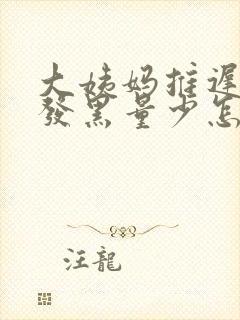 大姨妈推遲
發黑量少怎
汪龍